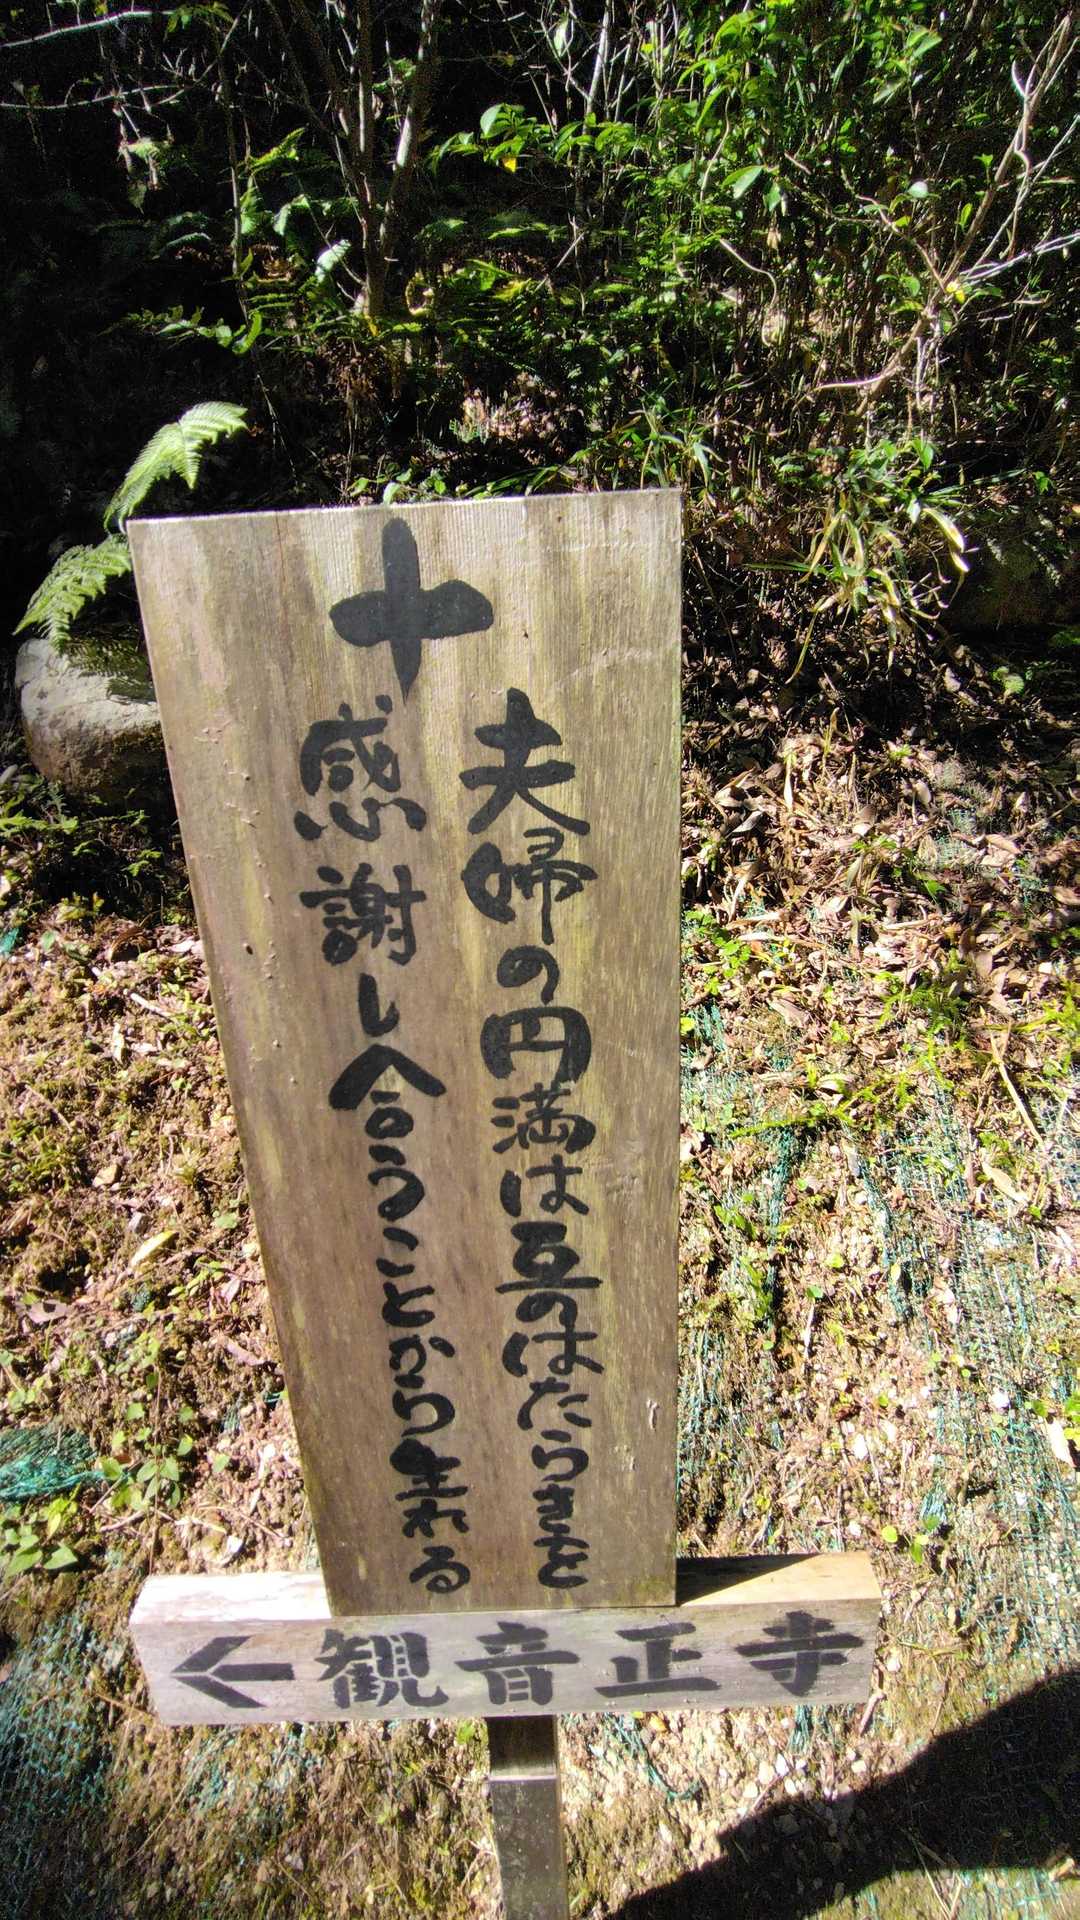 十
夫婦の円満は互のはたらきを
感謝し合うことから生れる
←観音正寺